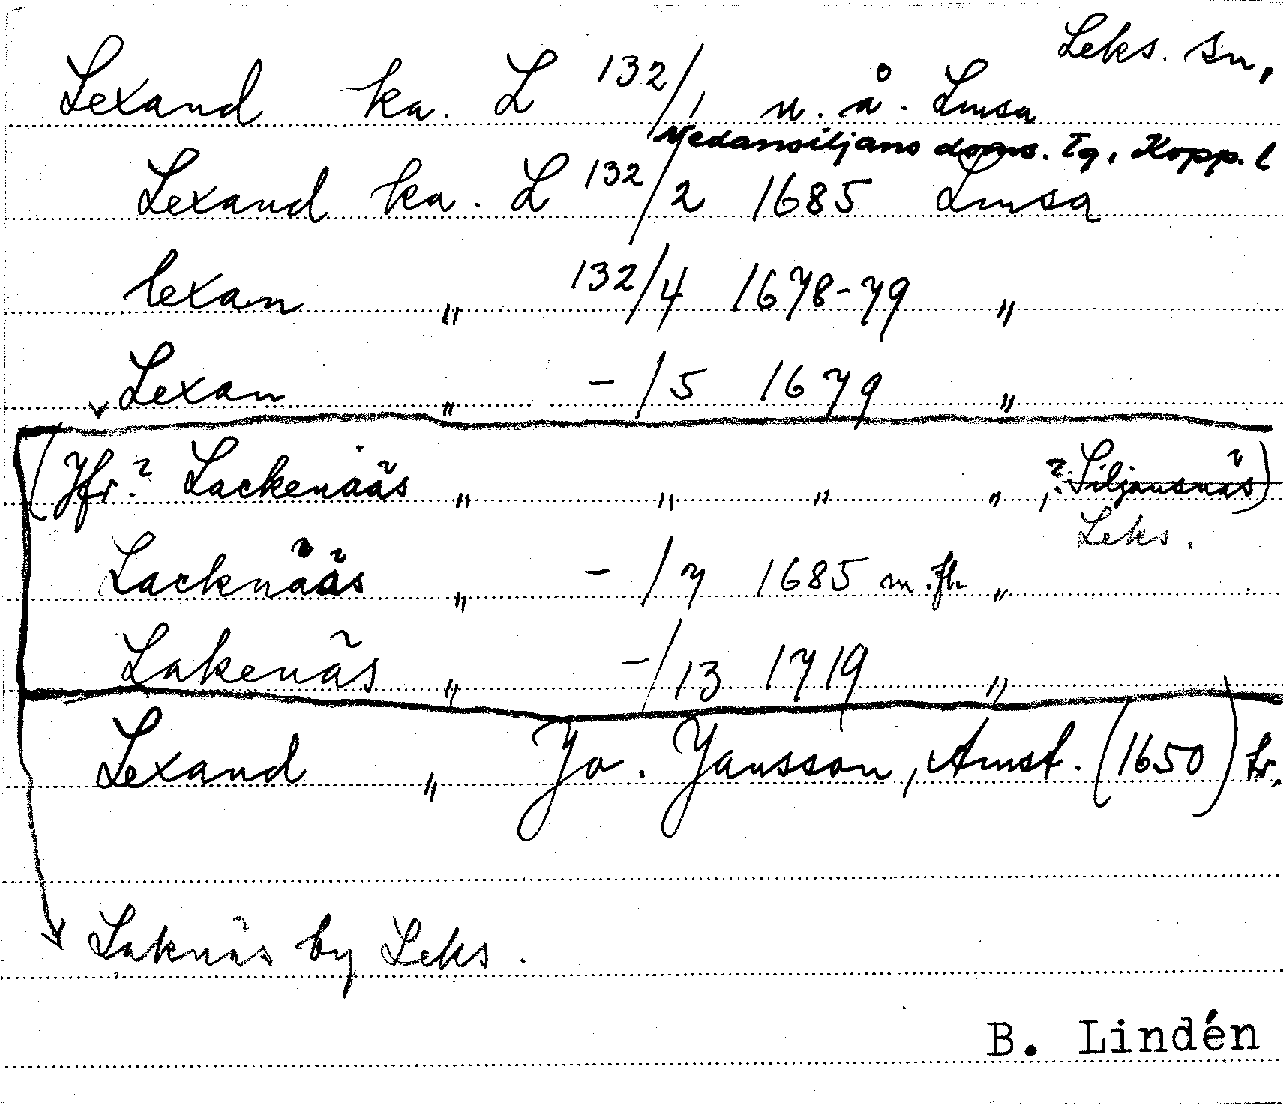 Leks. sn,
Lexand ka. L 132/1 u. å. Lmsa
Nedansiljans doms. Tg, Kopp. l
Lexand ka. L 132/2 1685 Lmsa
lexan " 132/4 1678-79 "
Lexan " - /5 1679 "
(Jfr? Lackenääs " " " " ,? Siljansnäs)
Leks.
Lacknääs " - /7 1685 m.fh "
Lakenäs " -/13 1719 "
Lexand " Jo. Jansson, Amst. (1650) tr.
Laknäs by Leks.
B. Lindén